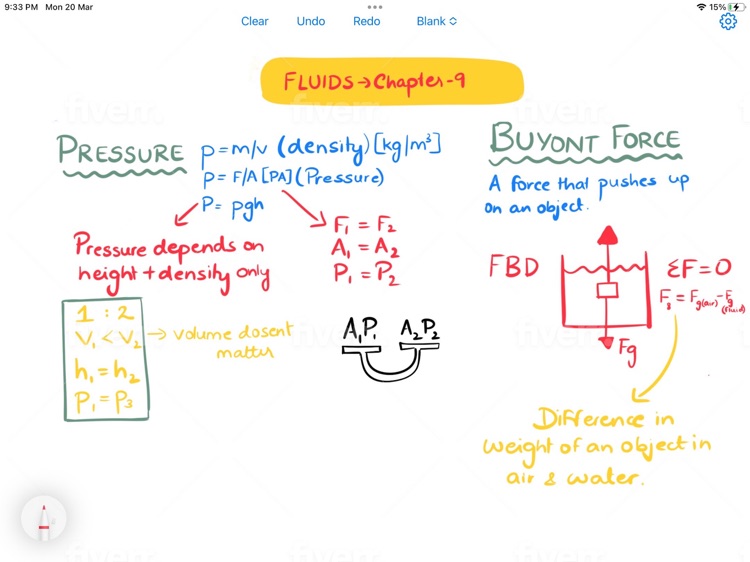 9:33 PM Mon 20 Mar
15%
Clear Undo Redo Blank
FLUIDS → Chapter-9
PRESSURE
p = m/v (density) [kg/m³]
P = F/A [PA] (Pressure)
P = pgh
Pressure depends on
height + density only
F₁ = F₂
A₁ = A₂
P₁ = P₂
1 : 2
V₁ < V₂ → volume dosent
matter
h₁ = h₂
P₁ = P₃
A₁P₁ A₂P₂
BUYONT FORCE
A force that pushes up
on an object.
FBD
ΣF = 0
Fg = Fg(air) - Fg(fluid)
Fg
Difference in
weight of an object in
air & water.
fiverr
fiverr
fiverr